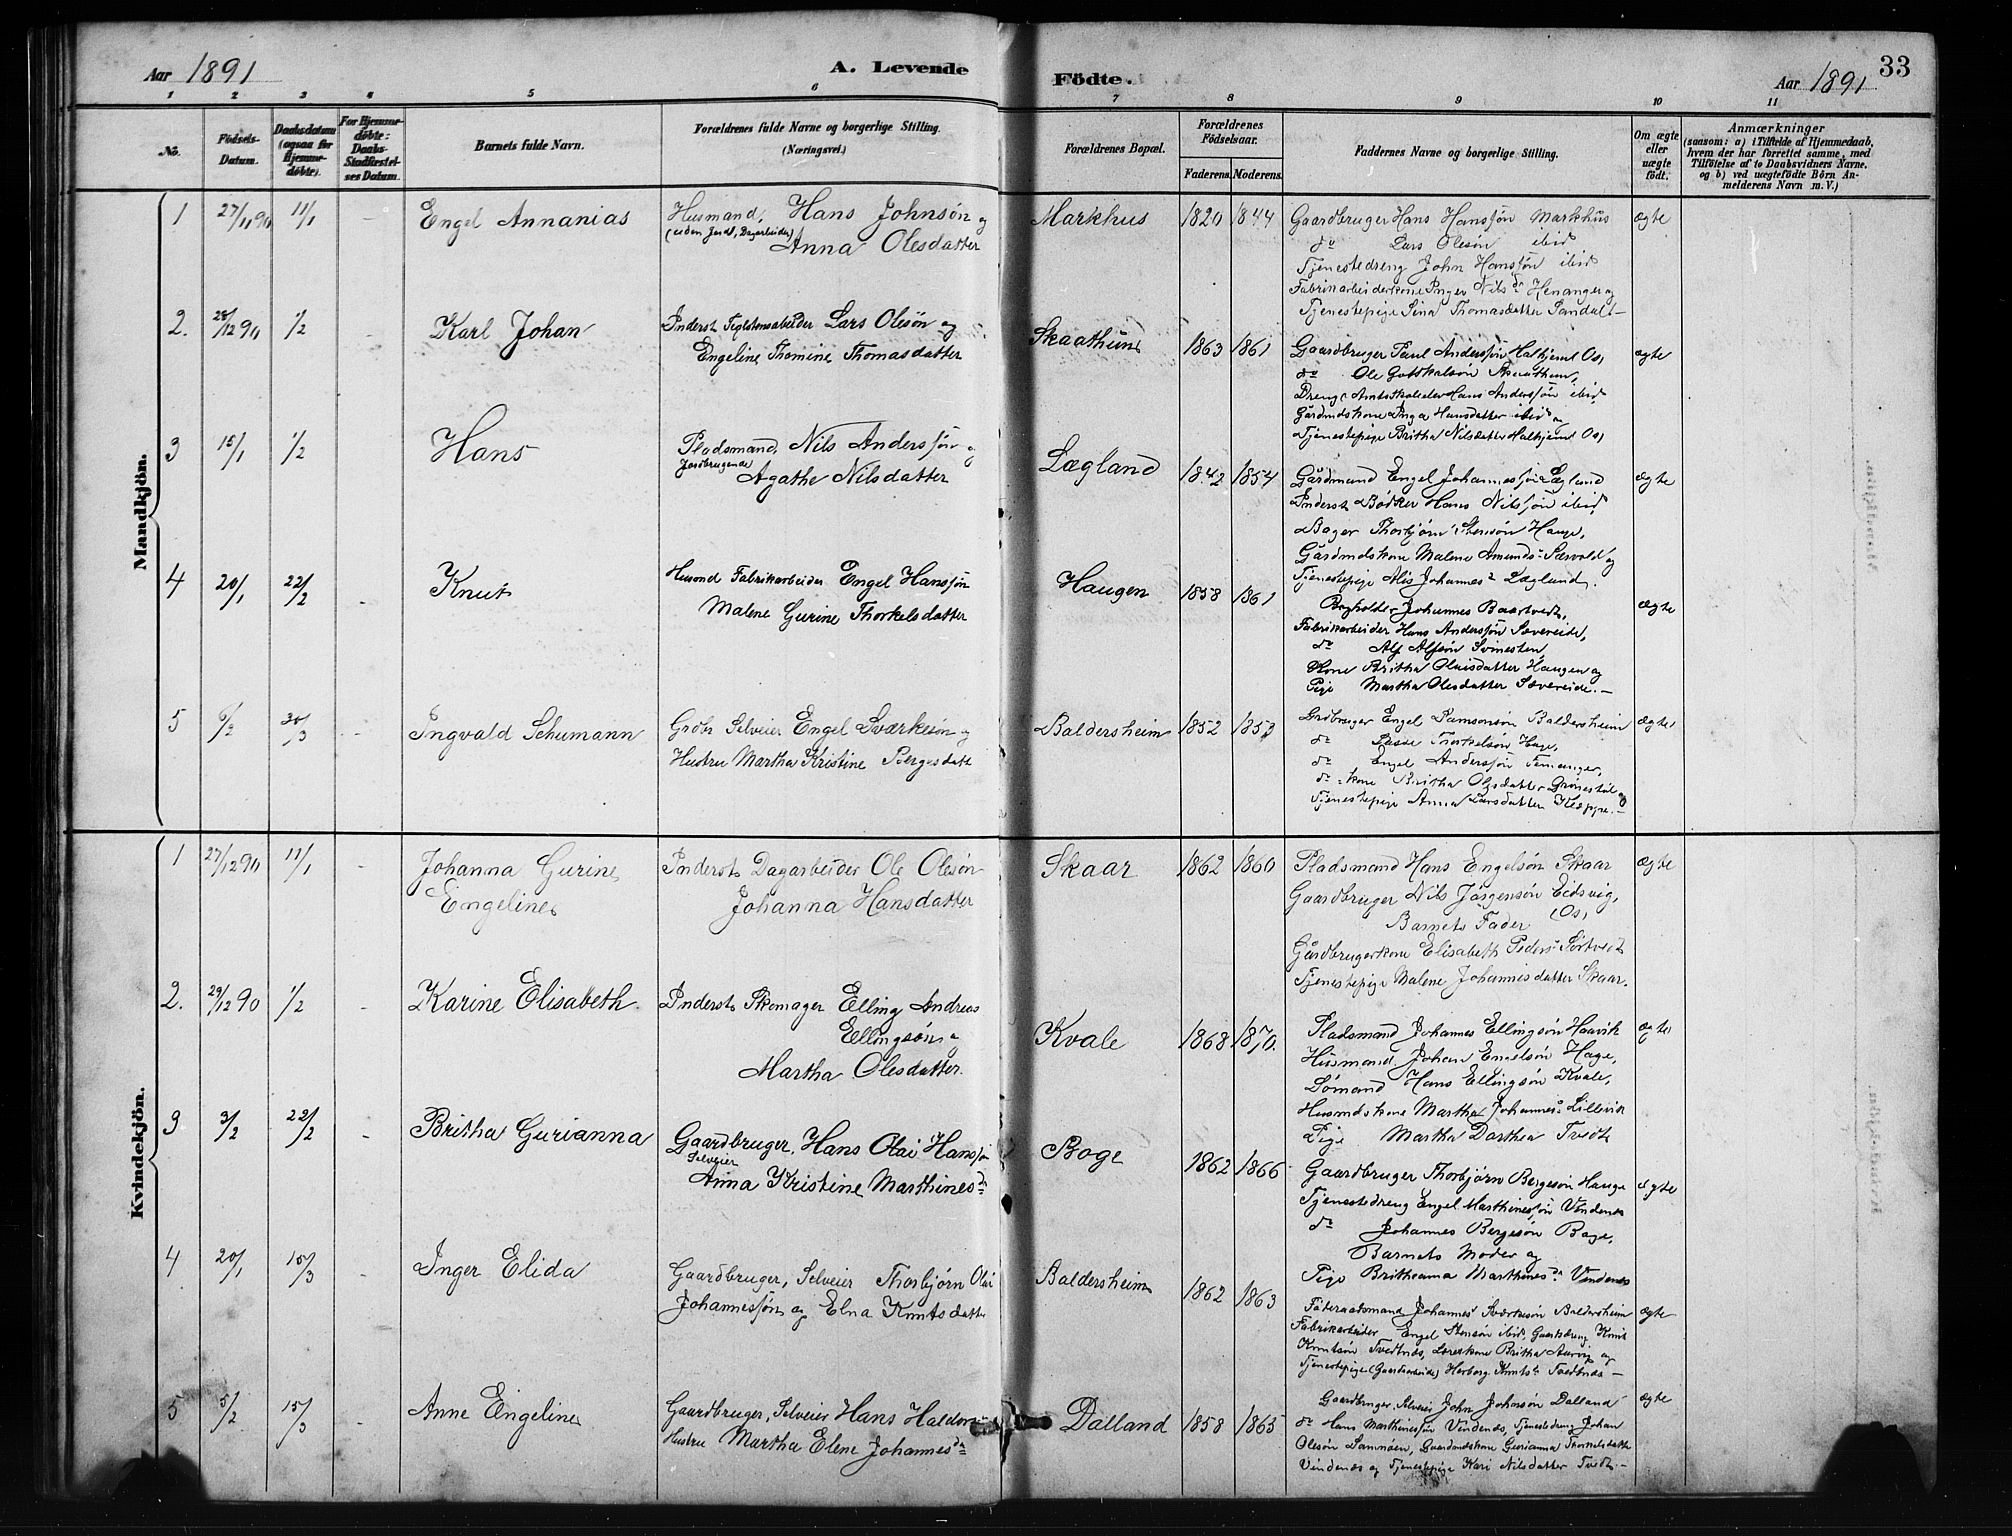 Aar 1891
A. Levende
Födte.
Aar 1891
33
1 2 3 4 5 6 7 8 9 10 11
No.
Födsels-Datum.
Daabsdatum (ogsaa for Hjemmedöbte).
For Hjemmedöbte: Daabs-Stadfæstelses Datum.
Barnets fulde Navn.
Forældrenes fulde Navne og borgerlige Stilling. (Næringsvei.)
Forældrenes Bopæl.
Forældrenes Födselsaar.
Faderens. Moderens.
Faddernes Navne og borgerlige Stilling.
Om ægte eller uægte födt.
Anmærkninger
(saasom: a) i Tilfælde af Hjemmedaab,
hvem der har forrettet samme, med
Tilföielse af to Daabsvidners Navne.
og b) ved uægtefödte Börn An-
melderens Navn m. V.)
Mandkjön.
1 27/11 90 11/1 - Engel Annanias
Husmand, Hans Johnsön og
(uden Jord, Dagarbeider)
Anna Olesdatter
Markhus 1820 1844
Gaardbruger Hans Hanssön Markhus
do Lars Olesön ibid
Tjenestedreng John Hanssön ibid
Fabrikarbeiderkone Inger Nilsdr Henanger og
Tjenestepige Sina Thomasdatter Sandal -
ægte
2. 28/12 90 1/2 - Karl Johan
Inderst Teglstensarbeider Lars Olesön og
Engeline Thomine Thomasdatter
Skaathun 1863 1861
Gaardbruger Paul Anderssön Halhjem Os,
do Ole Gottskalsön Skaathun,
Dreng, Amtsskoleelev Hans Anderssön ibid,
Gårdmdskone Inga Hansdatter ibid og
Tjenestepige Britha Nilsdatter Halhjem Os,
ægte
3 15/1 1/2 Hans
Pladsmand, Nils Anderssön og
Jordbrugende
Agathe Nilsdatter
Lægland 1842 1854
Gårdmand Engel Johannessön Lægland
Inderst Bödker Hans Nilssön ibid,
Bager Thorbjörn Stensön Hauge,
Gårdmdskone Malene Amunds Sævold og
Tjenestepige Alis Johannes Lægland.
ægte
4 20/1 22/2 - Knut
Husmd Fabrikarbeider Engel Hanssön
Malene Gurine Thorkelsdatter
Haugen 1858 1861
Johannes Baartvedt,
Fabrikarbeider Hans Anderssön Sævereide,
do Alf Alfsön Svinesten,
Kone Britha Olaisdatter Haugen og
Pige Martha Olesdatter Sævereide. -
ægte
5 6/2 30/3 - Ingvald Schumann
Grdbr Selveier Engel Sværkesön og
Hustru Martha Kristine Børgesdatt
Baldersheim 1852 1853
Grdbruger Engel Samsonsön Baldersheim
do Lasse Thorkelsön Hage,
do Engel Anderssön Femanger,
do kone Britha Olesdatter Grönestöl og
Tjenestepige Anna Larsdatter Kleppe. -
ægte
Kvindekjön.
1 27/12 90 11/1 - Johanna Gurine
Engeline
Inderst Dagarbeider Ole Olesön
Johanna Hansdatter
Skaar 1862 1860
Pladsmand Hans Engelsön Skaar
Gaardbruger Nils Jörgensön Eidsvig,
Barnets Fader (Os)
Gårdbrugerkone Elisabeth Peders Sörtvedt
Tjenestepige Malene Johannisdatter Skaar.
ægte
2. 29/12 90 1/2 - Karine Elisabeth
Inderst Skomager Elling Andreas
Ellingsön og
Martha Olesdatter.
Kvale 1868 1870.
Pladsmand Johannes Ellingsön Haavik
Husmand Johan Engelsön Hage,
Sömand Hans Ellingsön Kvale,
Husmdskone Martha Johannes Lillevik
Pige Martha Dorthea Tvedt
ægte
3 3/2 22/2 - Britha Gurianna
Gaardbruger, Hans Olai Hanssön
Selveier
Anna Kristine Marthinesdr
Boge 1862 1866
Gaardbruger Thorbjörn Bergesön Hauge
Tjenestedreng Engel Marthinessön Vindenes
do Johannes Bergesön Boge,
Barnets Moder og
Pige Britheanna Marthinesdr Vindenes
ægte
4 20/1 15/3 - Inger Elida
Gaardbruger, Selveier Thorbjörn Olai
Johannessön og Elna Knutsdatter
Baldersheim 1862 1863
Föderaadsmand Johannes Sværkesön Baldersheim
Fabrikarbeider Engel Stensön ibid, Gaardsdreng Knut
Knutsön Tvedtnæs, Britha Aarvig og
Tjenestepige (Gaardarbeide) Herborg Knuts Tvedtnæs -
ægte
5 5/2 15/3 - Anne Engeline
Gaardbruger, Selveier Hans Haldorsön
Hustru Martha Elene Johannesdr
Dalland 1858 1865
Gaardbruger, Selveier John Johnsön Dalland
do Hans Marthinessön Vindenes, Tjenestedreng Johan
Olesön Samnöen, Gaardmdskone Gurianna Thorkelsdatter
Vindenes og Tjenestepige Kari Nilsdatter Tvedt -
ægte